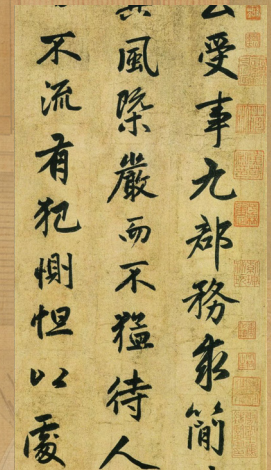 受事九郡務求簡
風槩嚴而不猛待人
不流有犯惻怛以處